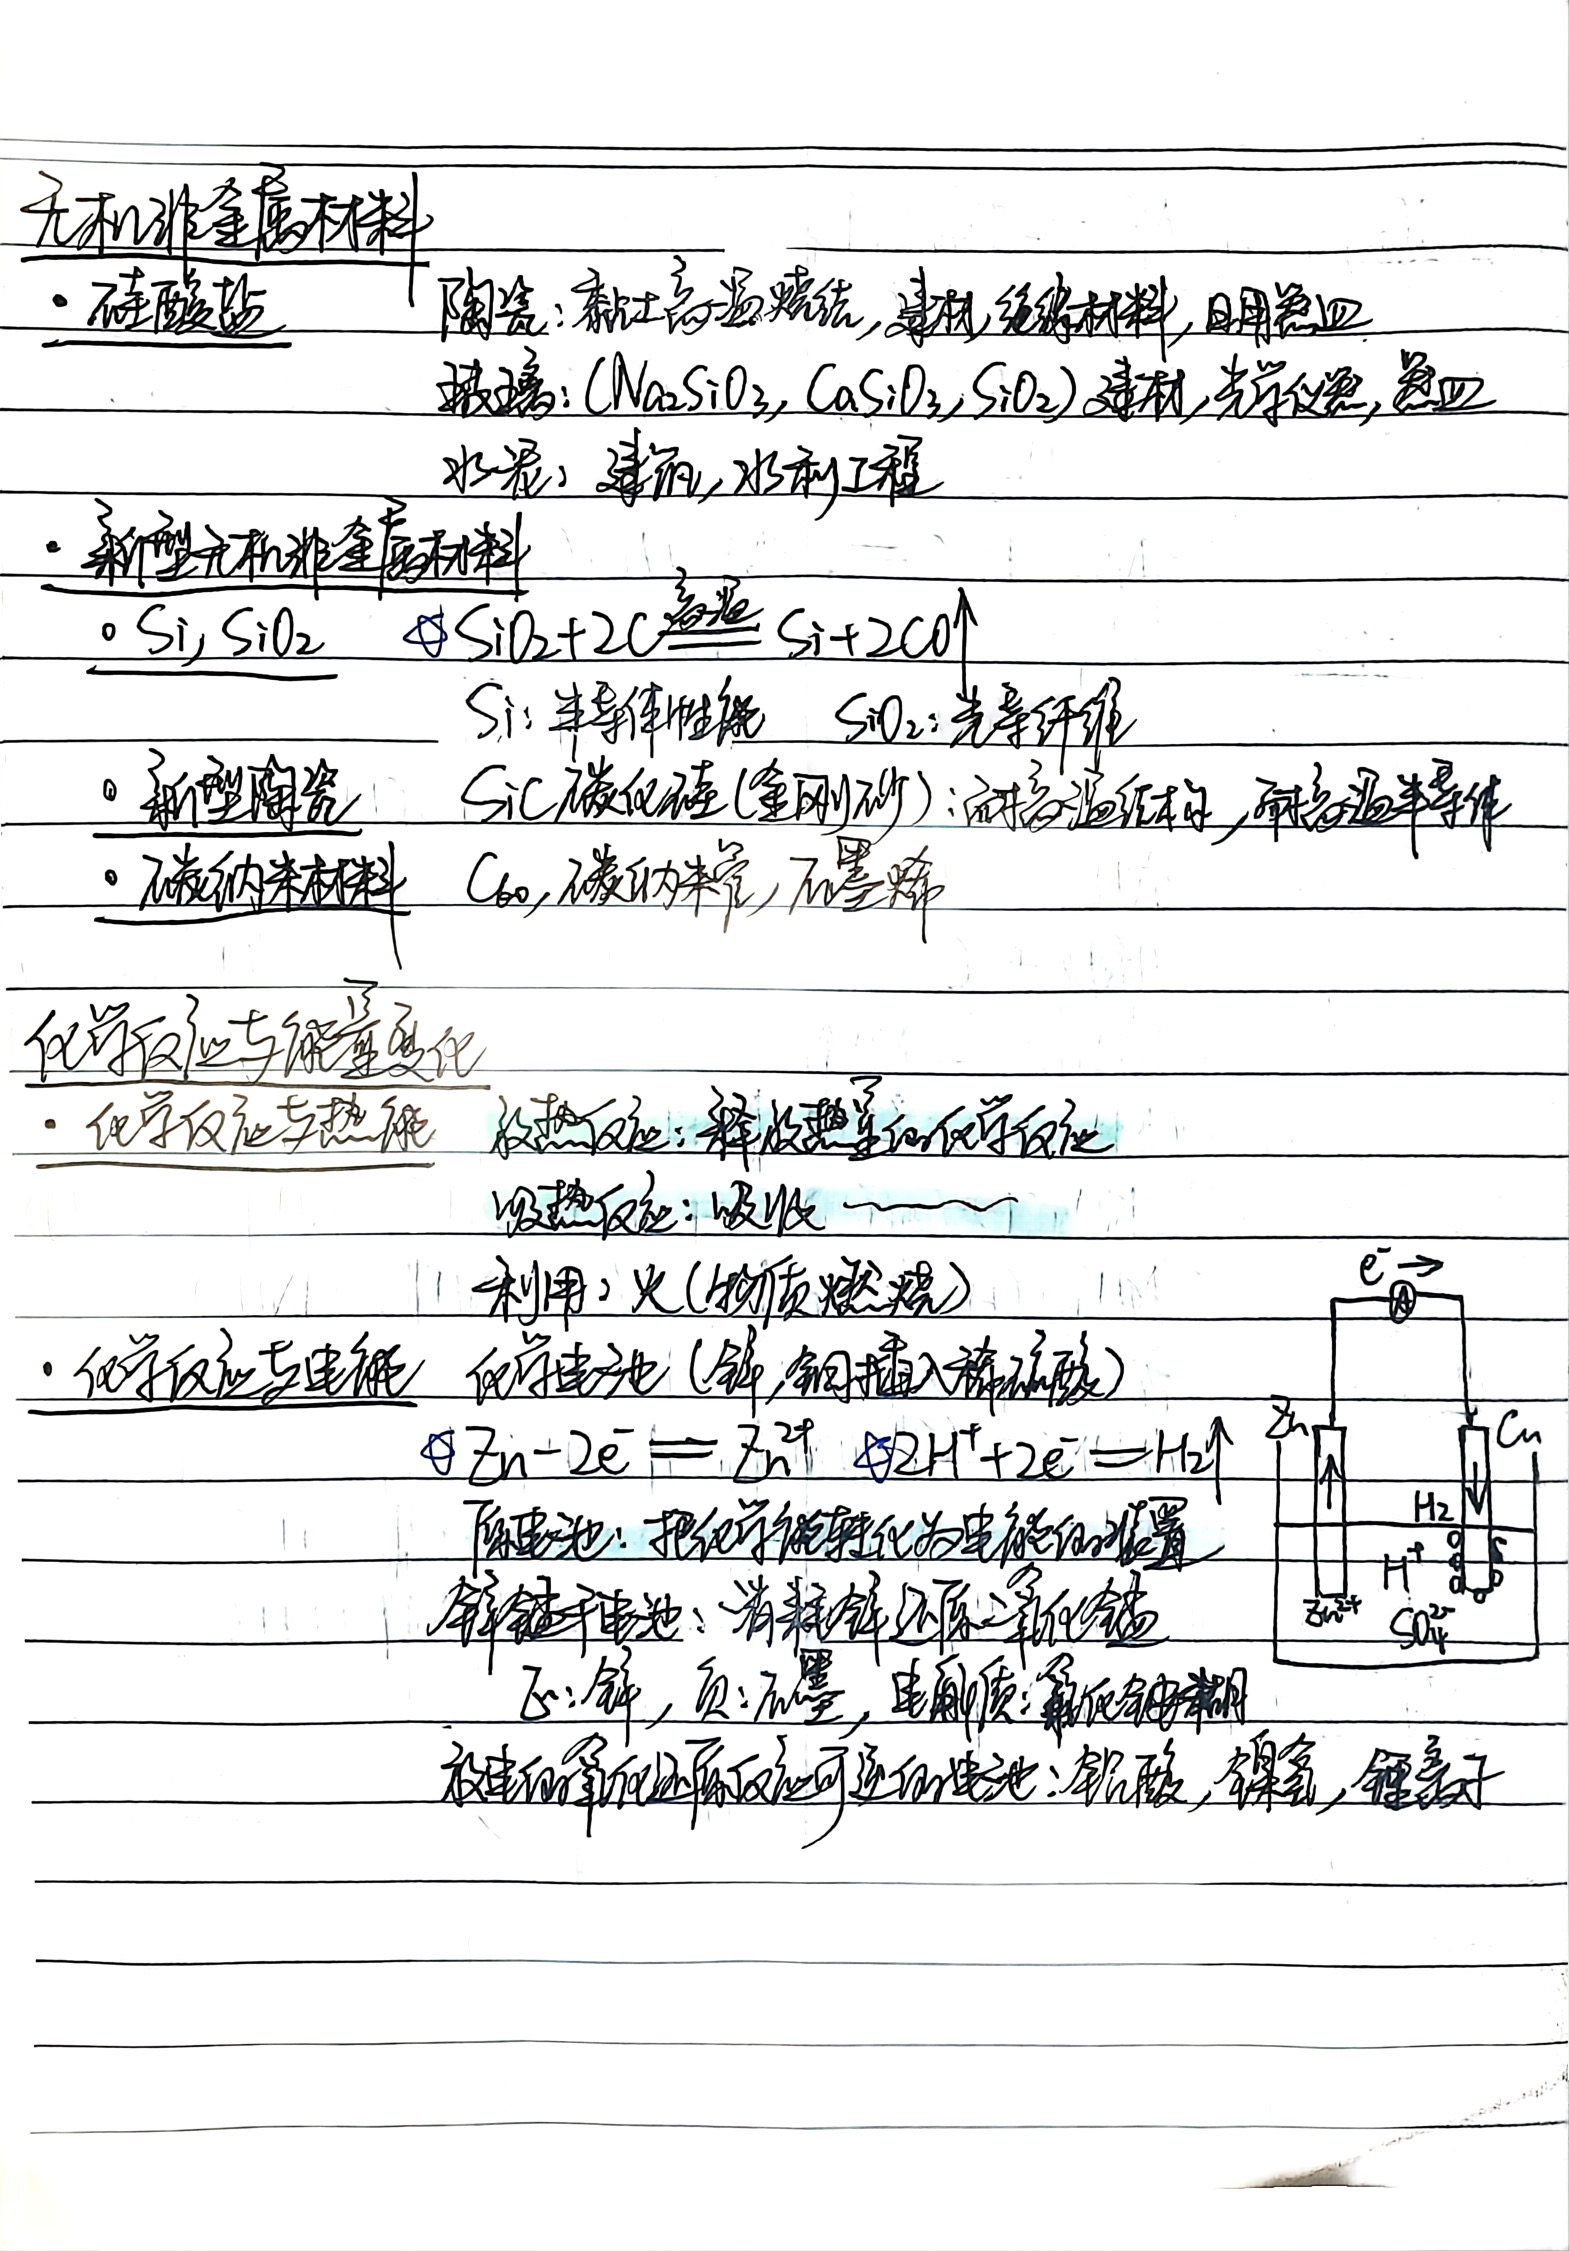 无机非金属材料
· 硅酸盐 陶瓷：黏土高温烧结，建材，绝缘材料，日用器皿
玻璃：(Na₂SiO₃, CaSiO₃, SiO₂) 建材，光学仪器，器皿
水泥：建筑，水利工程
· 新型无机非金属材料
∘ Si, SiO₂ ☆ SiO₂+2C 高温 Si+2CO↑
Si：半导体性能 SiO₂：光导纤维
∘ 新型陶瓷 SiC 碳化硅(金刚砂)：耐高温结构，耐高温半导体
∘ 碳纳米材料 C₆₀，碳纳米管，石墨烯
化学反应与能量变化
· 化学反应与热能 放热反应：释放热量的化学反应
吸热反应：吸收
利用：火(物质燃烧)
· 化学反应与电能 化学电池 (锌，铜插入稀硫酸)
☆ Zn-2e⁻ = Zn²⁺ ☆ 2H⁺+2e⁻ = H₂↑
原电池：把化学能转化为电能的装置
锌锰干电池：消耗锌还原二氧化锰
正：锌，负：石墨，电解质：氯化铵糊
放电的氧化还原反应可逆的电池：铅酸，镍氢，锂离子
e⁻ →
A
Zn Cu
H₂
H⁺
Zn²⁺
SO₄²⁻